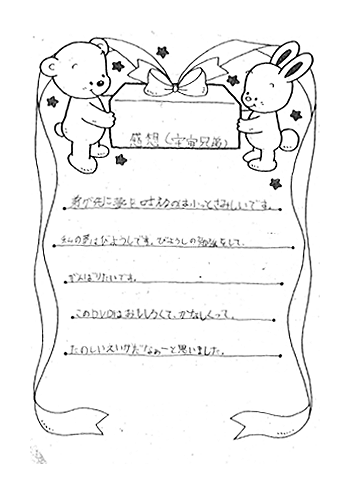 感想(宇宙兄弟)
弟が先に夢を叶えたのはちょっとさみしいです。
私の夢はびようしです。びようしの勉強をして、
がんばりたいです。
このDVDはおもしろくて、かなしくって、
たのしいえいがだなぁーと思いました。